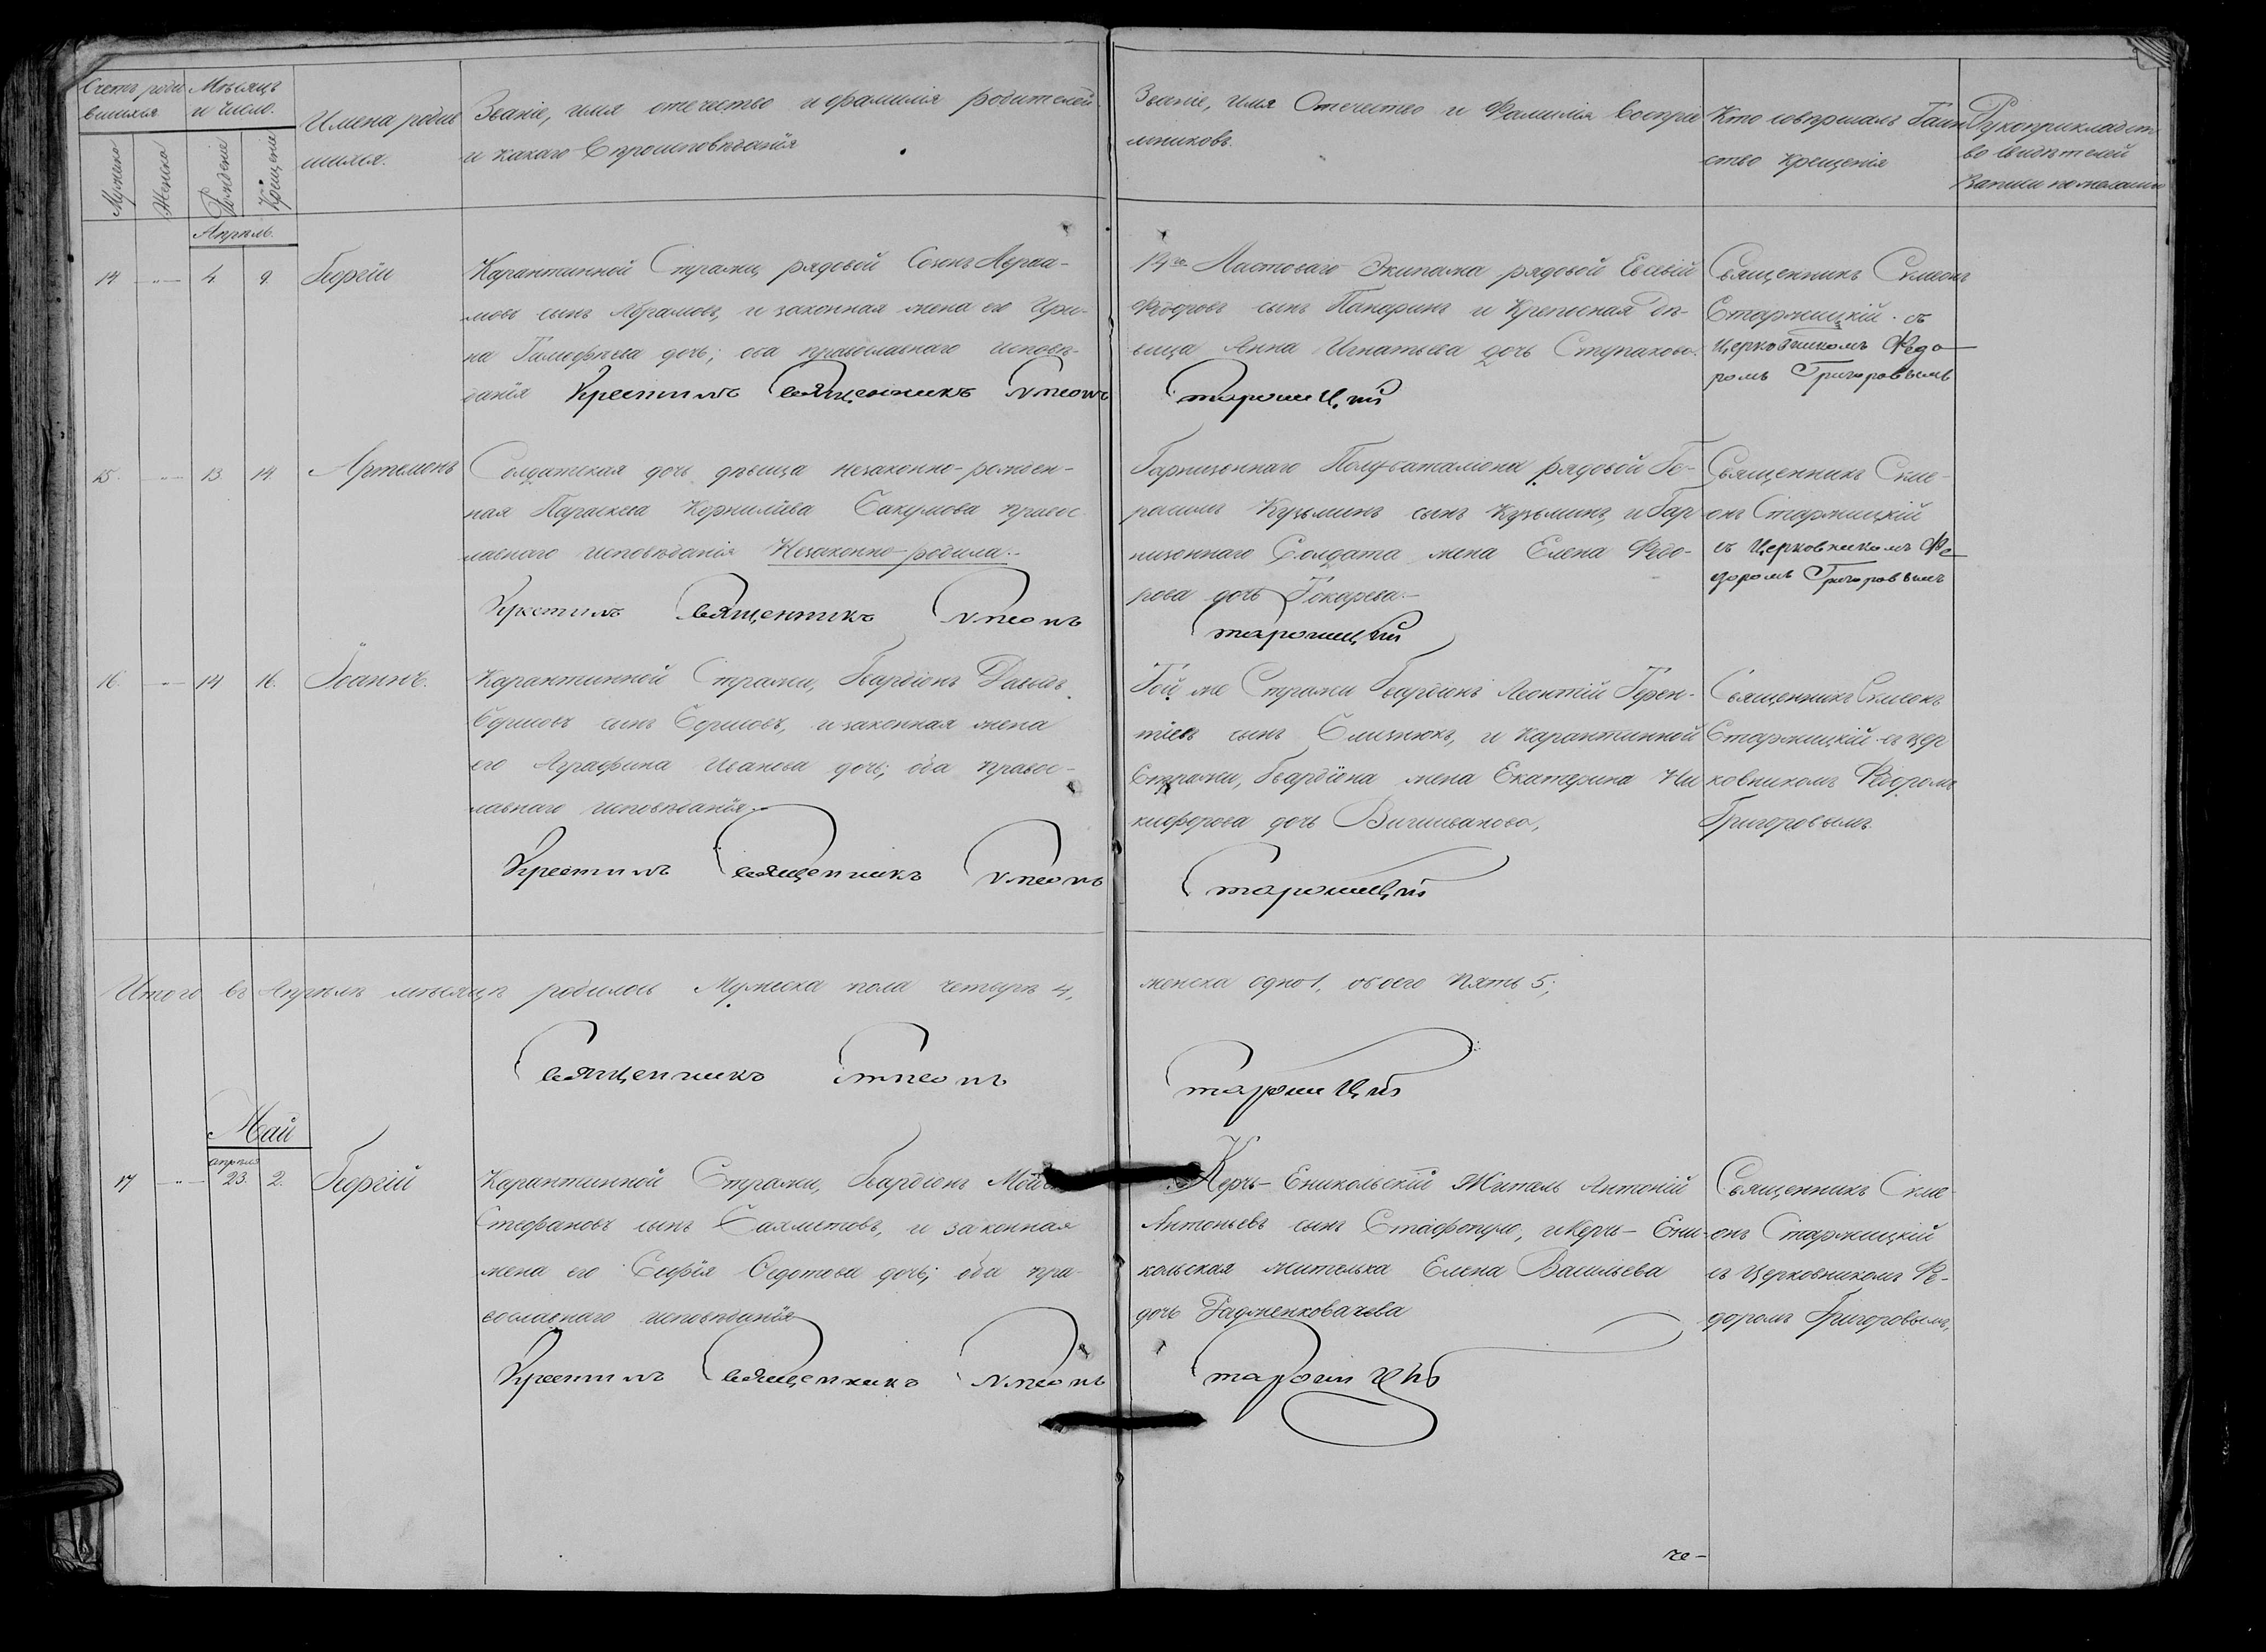 Счетъ роди
вшихся
Мѣсяцъ
и число.
Мужеска
Женска
Рожденіе
Крещеніе
Имена родив
шихся.
Званіе, имя отечество и фамилія родителей
и какаго Вѣроисповѣданія
Званіе, имя Отечество и Фамилія Воспріе
мниковъ.
Кто совершалъ Таин
ство Крещенія
Рукоприкладст
во свидѣтелей
Записи по желанію
Апрѣль.
14 4. 9. Георгій
Карантинной Стражи рядовой Созонъ Авраа-
мовъ сынъ Абрамовъ, и законная жена его Ири-
на Тимофѣева дочь; оба православнаго исповѣ-
данія Крестилъ Священникъ Симеонъ
Ластоваго Экипажа рядовой Евсевій
Федоровъ сынъ Панаринъ и Крепосная дѣ-
вица Анна Игнатьева дочь Ступакова.
Старжицкій
Священникъ Симеонъ
Старжицкій съ
Церковникомъ Федо
ромъ Григоровымъ
15. 13. 14. Артемонъ
Солдатская дочь дѣвица незаконно-рожден-
ная Параскева Корнилѣва Бакумова правос
лавнаго исповѣданія Незаконно-родила.
Крестилъ Священникъ Симеонъ
Гарнизоннаго Полубаталіона рядовой Ге-
расимъ Кузьминъ сынъ Кузьминъ, и Гар
низоннаго Солдата жена Елена Федо-
рова дочь Токарева.
Старжицкій
Священникъ Симе-
онъ Старжицкій
съ Церковникомъ Фе
доромъ Григоровымъ
16. 14 16. Іоаннъ.
Карантинной Стражи, Гвардіонъ Давыдъ
Борисовъ сынъ Борисовъ, и законная жена
его Аграфина Иванова дочь; оба правос-
лавнаго исповѣданія
Крестилъ Священникъ Симеонъ
Той же Стражи Гвардіонъ Леонтій Терен-
тіевъ сынъ Слизнюкъ, и Карантинной
Стражи, Гвардіона жена Екатерина Ни
кифорова дочь
Старжицкій
Священникъ Симеонъ
Старжицкій съ цер
ковникомъ Федоромъ
Григоровымъ.
Итого въ Апрѣлѣ мѣсяцѣ родилось Мужеска пола четыре 4,
женска одно 1, обоего пять 5;
Священникъ Симеонъ
Старжицкій
Май
апреля
17 23. 2. Георгій
Карантинной Стражи, Гвардіонъ
Стефановъ сынъ Саяметовъ, и законная
жена его Софія Федотова дочь; оба пра-
вославнаго исповѣданія
Крестилъ Священникъ Симеонъ
Керчь-Еникольскій Житель Антоній
Антоньевъ сынъ Стафопуло, и Керчь-Ени-
кольская жителька Елена Васильева
дочь
Старжицкій
Священникъ Симе-
онъ Старжицкій
съ Церковникомъ Фе-
доромъ Григоровымъ,
че-